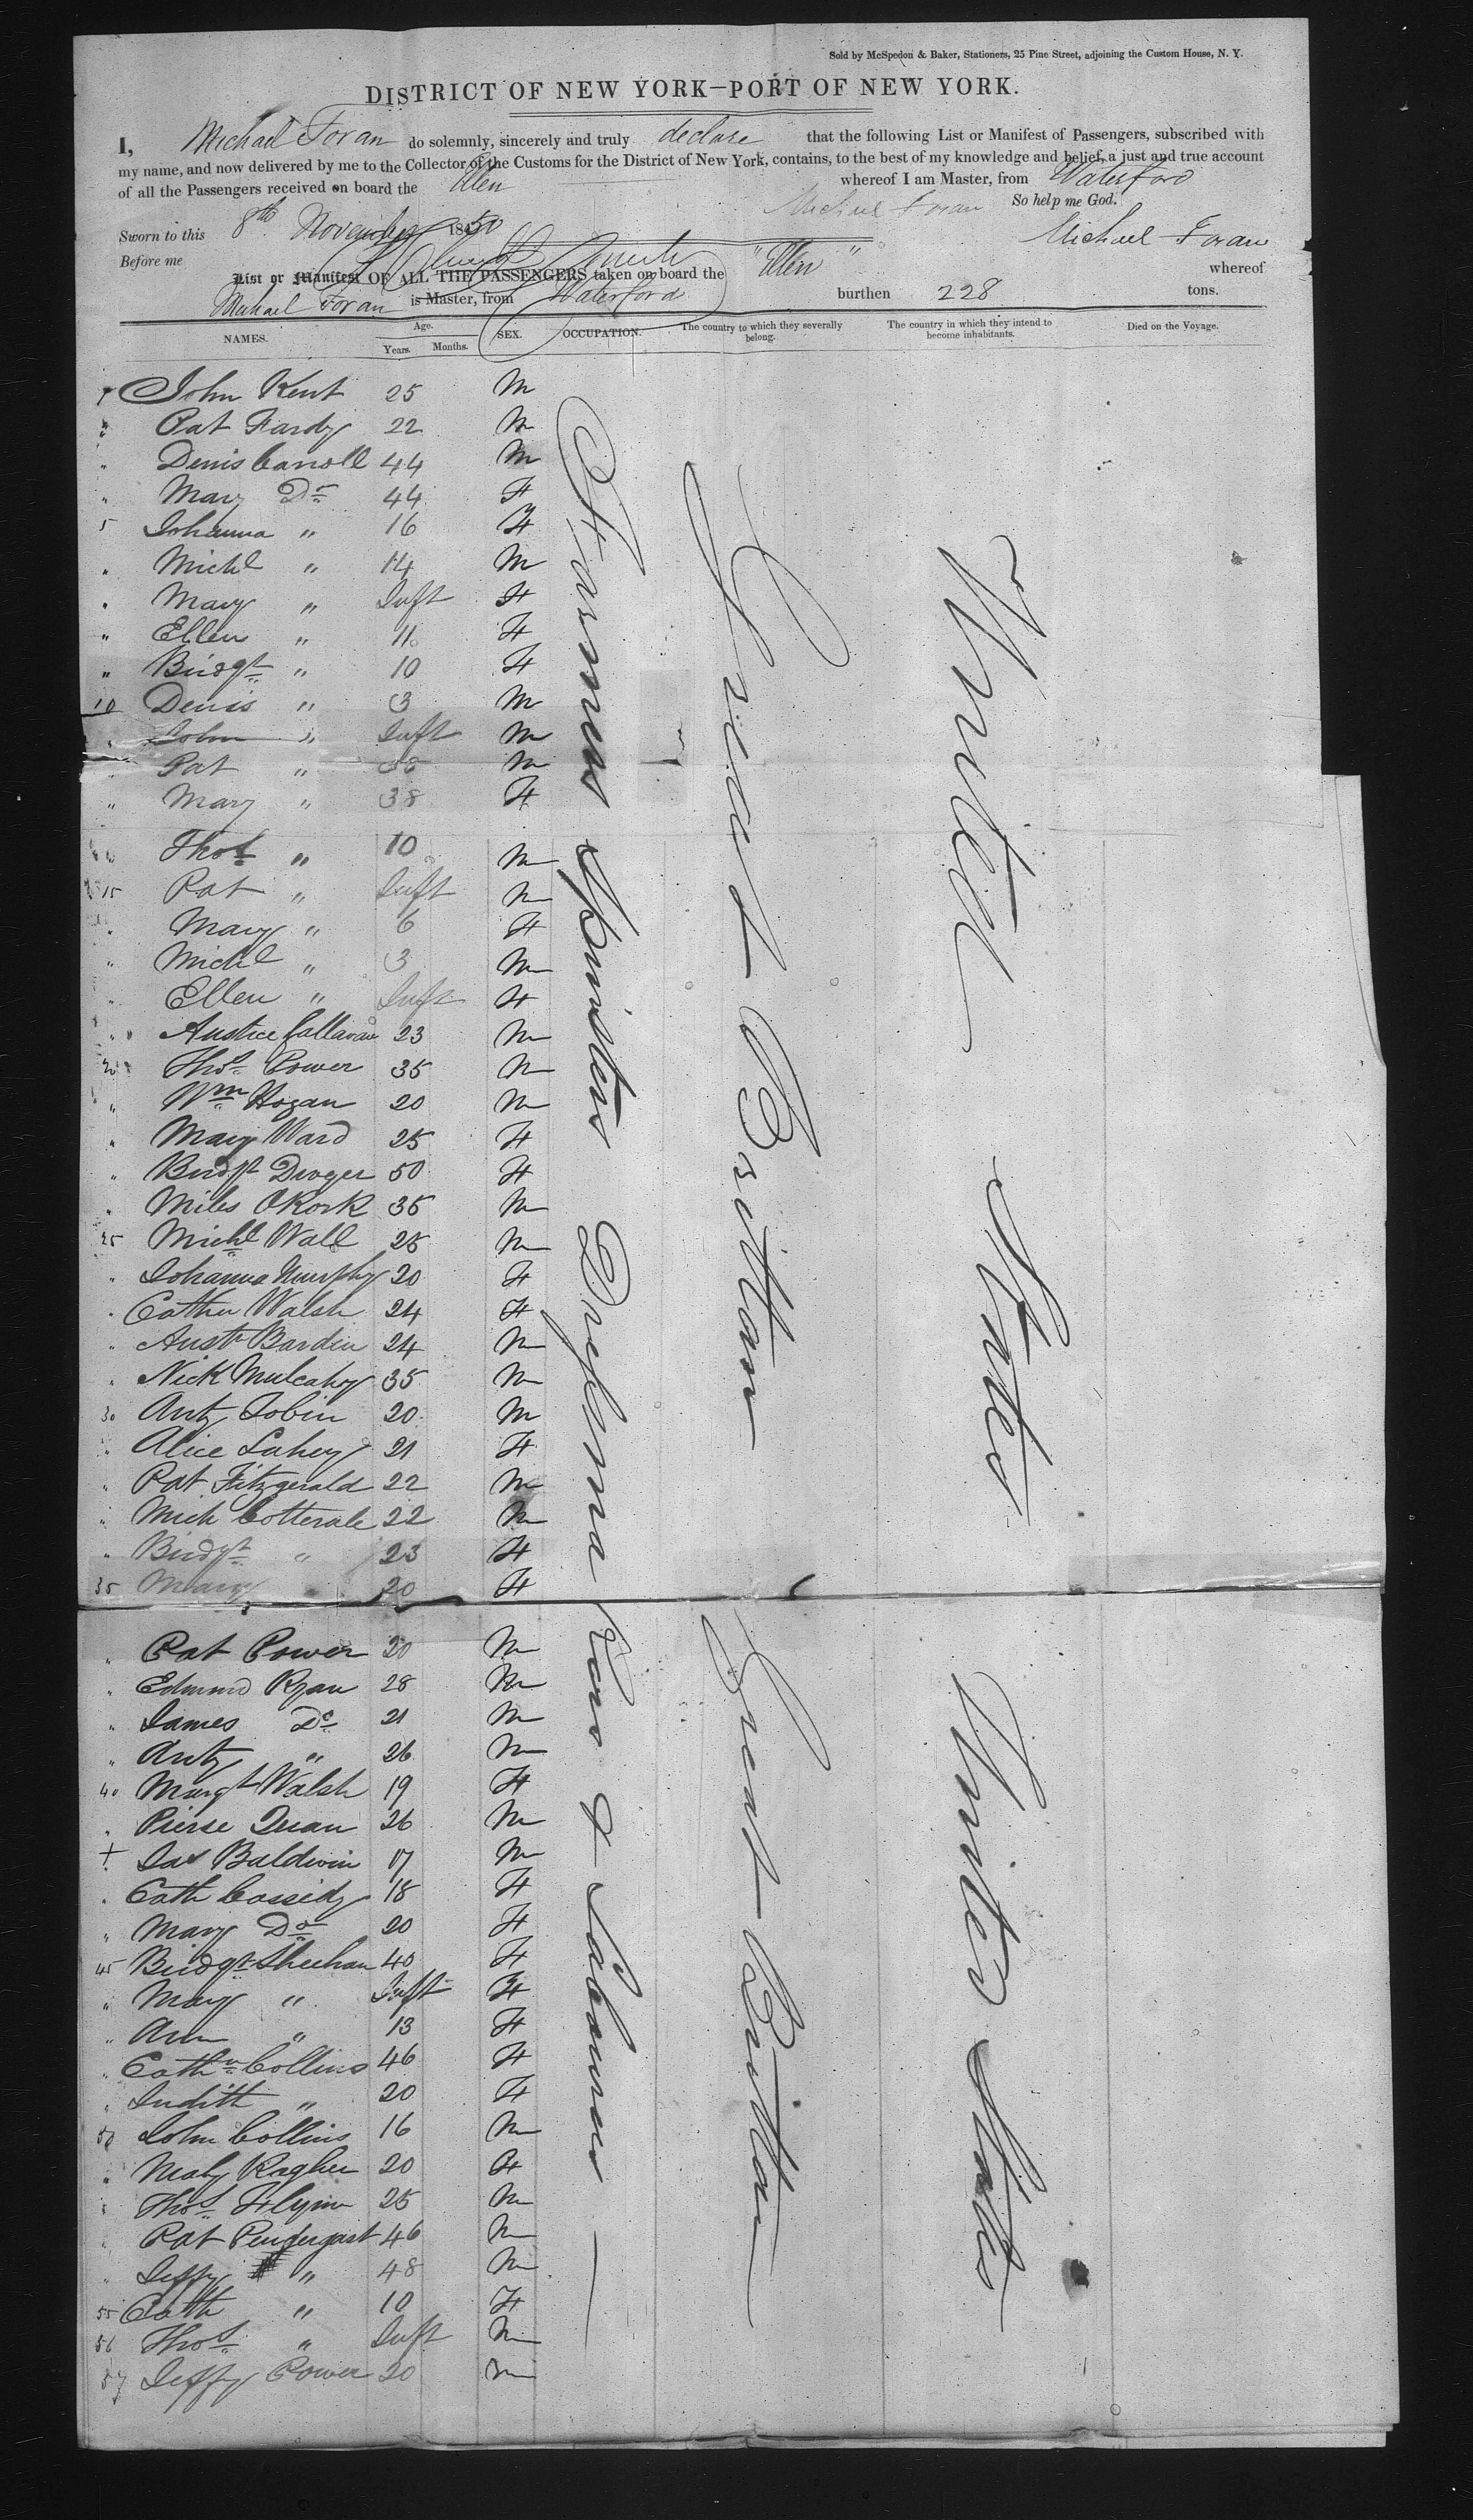 Sold by McSpedon & Baker, Stationers, 25 Pine Street, adjoining the Custom House, N. Y.
DISTRICT OF NEW YORK—PORT OF NEW YORK.
I, Michael Foran do solemnly, sincerely and truly declare that the following List or Manifest of Passengers, subscribed with
my name, and now delivered by me to the Collector of the Customs for the District of New York, contains, to the best of my knowledge and belief, a just and true account
of all the Passengers received on board the Ellen whereof I am Master, from Waterford
Michael Foran So help me God.
Sworn to this 8th November 1850 Michael Foran
Before me
List or Manifest OF ALL THE PASSENGERS taken on board the "Ellen" whereof
Michael Foran is Master, from Waterford burthen 228 tons.
NAMES. Age. Years. Months. SEX. OCCUPATION. The country to which they severally belong. The country in which they intend to become inhabitants. Died on the Voyage.
John Kent 25 M
Pat Fardy 22 M
Denis Carroll 44 M
Mary Do 44 F
5 Johanna " 16 F
" Michl " 14 M
" Mary " Inft F
" Ellen " 11 F
" Bridgt " 10 F
10 Denis " 3 M
" John " Inft M
" Pat " 38 M
" Mary " 38 F
Thos " 10 M
15 Pat " Inft M
" Mary " 6 F
" Michl " 3 M
" Ellen " Inft F
" Austice Callavan 23 M
20 Thos Power 35 M
" Wm Hogan 20 M
" Mary Ward 25 F
" Bridgt Dwyer 50 F
" Miles OKork 35 M
25 Michl Wall 25 M
" Johanna Murphy 20 F
" Cathn Walsh 24 F
" Austn Bardin 24 M
" Nick Mulcahy 35 M
30 Anty Tobin 20 M
" Alice Lahey 21 F
" Pat Fitzgerald 22 M
" Mich Cotterale 22 M
" Bridgt " 23 F
35 Mary 20 F
" Pat Power 20 M
" Edmund Ryan 28 M
" James Do 21 M
" Anty " 26 M
40 Margt Walsh 19 F
" Pierse Quan 26 M
+ Jas Baldwin 17 M
" Cath Cassidy 18 F
" Mary Do 20 F
45 Bridgt Sheehan 40 F
" Mary " Inft F
" Ann " 13 F
" Cathn Collins 46 F
" Judith " 20 F
50 John Collins 16 M
" Maly Kagher 20 F
" Thos Flynn 25 M
" Pat Pendergast 46 M
" Jeffy " 48 M
55 Cath " 10 F
56 Thos " Inft M
57 Jeffy Power 20 M
Farmers Spinsters Dressmakers & Labourers
Great Brittan
Great Brittan
United States
United States